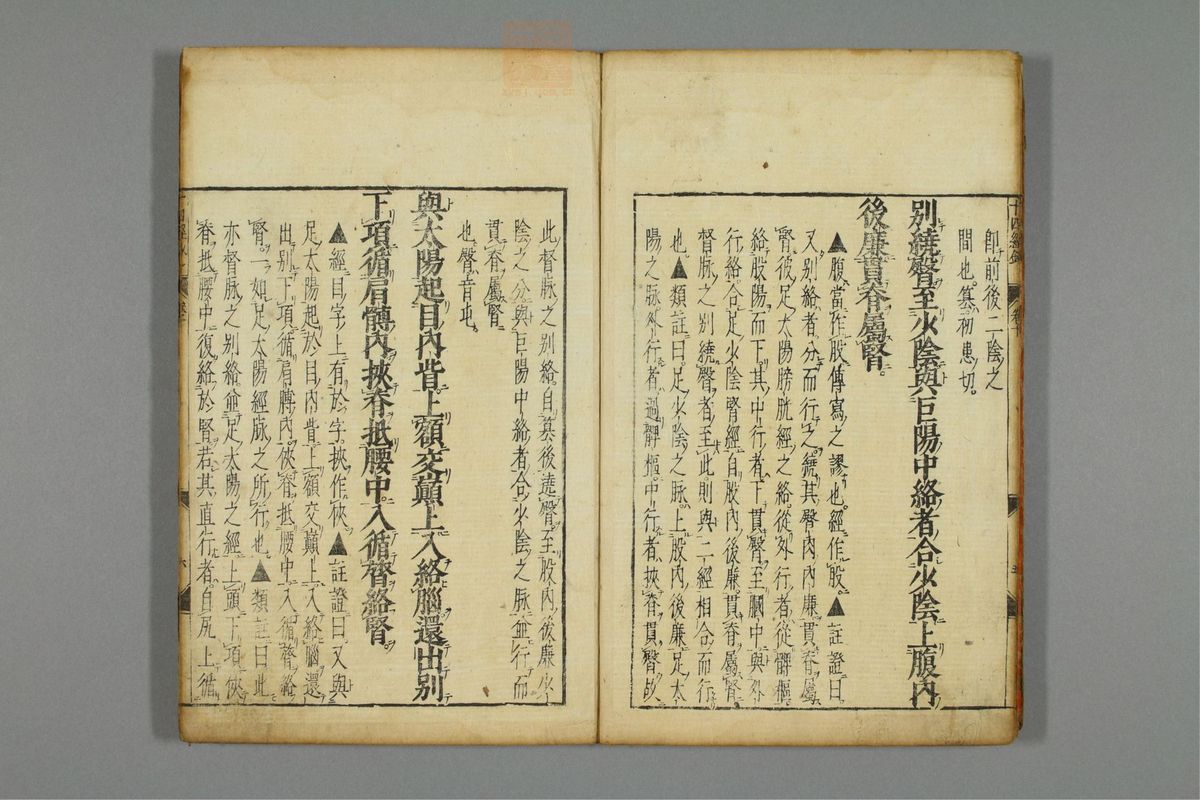 即前後二陰之
間也。簒初患切。
別繞臀至少陰與巨陽中絡者合少陰上腹內
後廉貫脊屬腎。
▲腹當作股傳寫之謬也經作股▲註證曰
又別絡者分而行之繞其臀內內廉貫脊屬
腎彼足太陽膀胱經之絡從外行者從髀樞
絡股陽而下其中行者下貫臀至膕中與外
行絡合足少陰腎經自股內後廉貫脊屬腎
督脉之別繞臀者至此則與二經相合而行
也▲類註曰足少陰之脉上股內後廉足太
陽之脉外行者過髀樞中行者挾脊貫臀故
此督脉之別絡自簒後遶臀至股內後廉少
陰之分與巨陽中絡者合少陰之脉並行而
貫脊屬腎
也臀音屯。
與太陽起目內眥上額交巔上入絡腦還出別
下項循肩髆內挾脊抵腰中入循膂絡腎。
▲經目字上有於字挾作俠▲註證曰又與
足太陽起於目內眥上額交巔上入絡腦還
出別下項循肩髆內俠脊抵腰中入循膂絡
腎一如足太陽經脉之所行也▲類註曰此
亦督脉之別絡並足太陽之經上頭下項俠
脊抵腰中復絡於腎若其直行者自尻上循